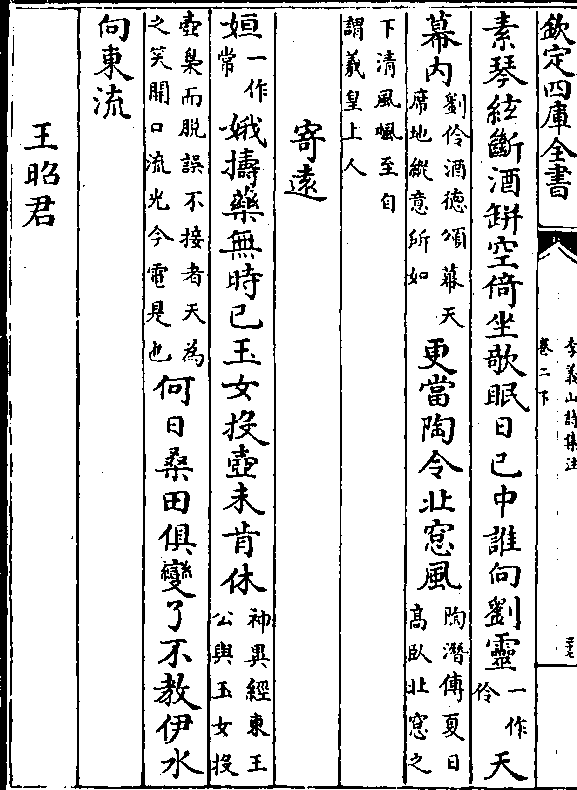 欽定四庫全書
李義山詩集注
卷二下
素琴絃斷酒缾空倚坐歌眠日已中誰向劉靈一作伶天
幕内劉伶酒德頌幕天席地縱意所如更當陶令北窓風陶潛傳夏日高臥北窓之
下清風颯至自謂羲皇上人
寄遠
姮一作常娥擣藥無時已玉女投壺未肯休神異經東王公與玉女投
壺梟而脱誤不接者天為之笑開口流光今電是也何日桑田俱變了不教伊水
向東流
王昭君